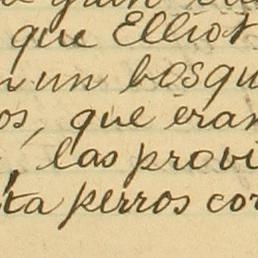 que Elliot
n un bosqu
os, que eran
las provi
ta perros cor